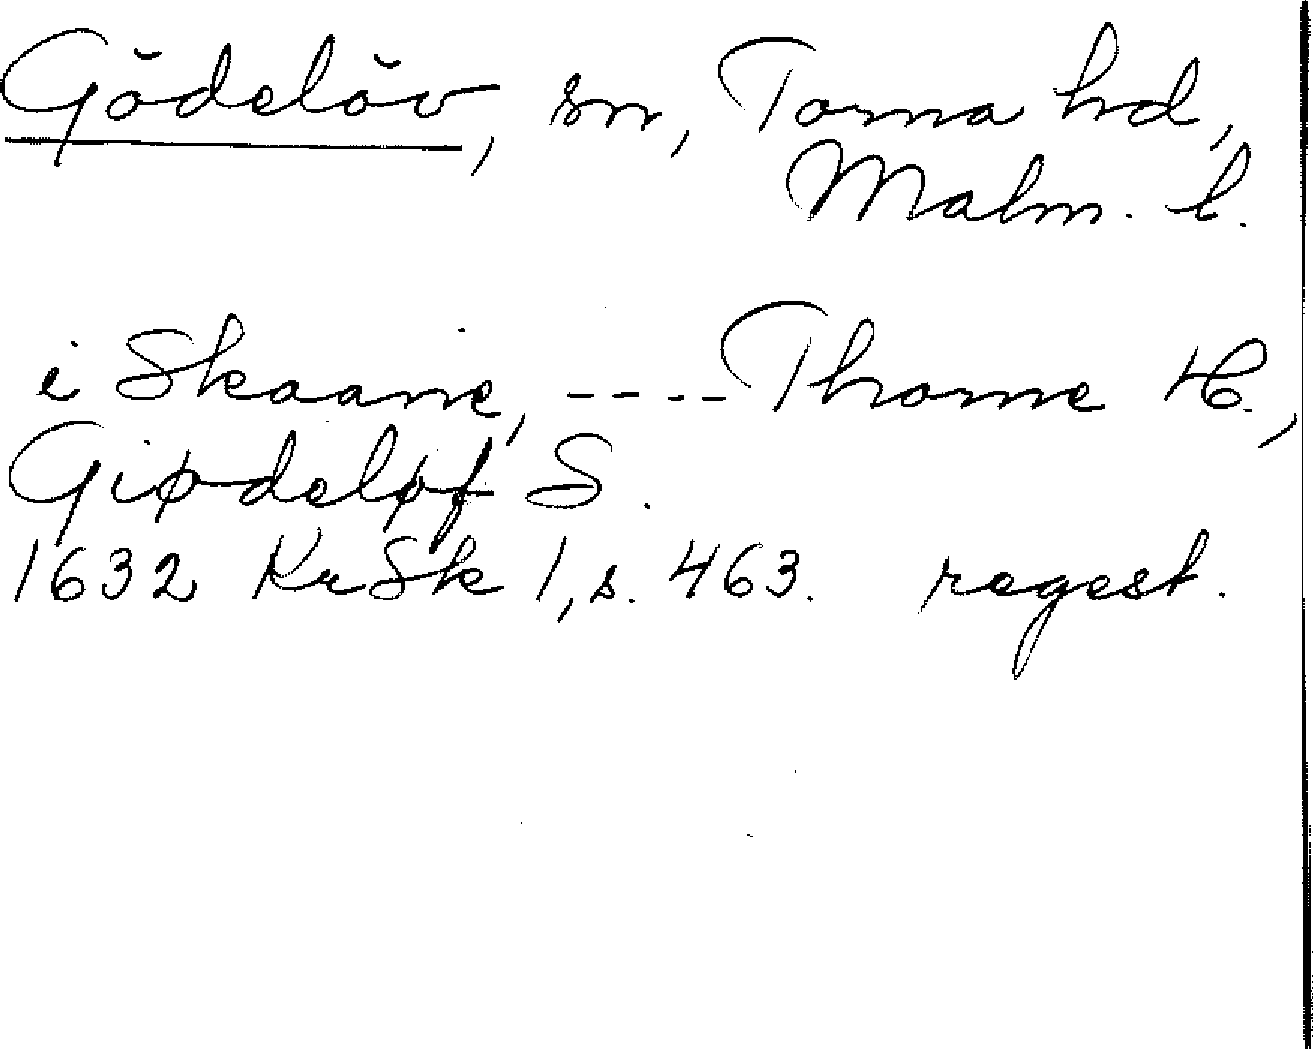 Gödelöv, sn, Torna hd,
Malm. l.
i Skaane, ---- Thorne H.,
Giødeløf S.
1632 KrSk 1, s. 463. regest.